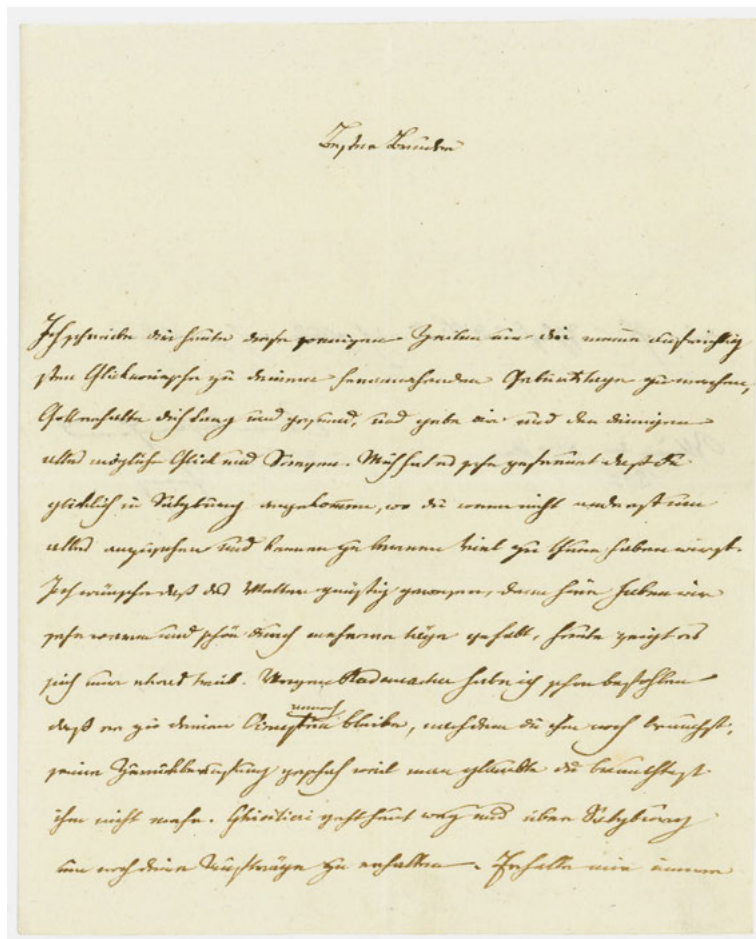 Bester Bruder
Ich schreibe dir heute diese wenigen Zeilen um dir meine aufrichtig
sten Glückwünsche zu deinem herannahenden Geburtstage zu machen,
Gott erhalte dich lang und gesund, und gebe dir und den deinigen
alles mögliche Glück und Seegen. Mich hat es sehr gefreuet daß du
glücklich in Salzburg angekommen, wo du wenn nicht anders um
alles anzusehen und kennen zu lernen viel zu thuen haben wirst.
Ich wünsche daß das Wetter günstig gewesen, denn hier haben wir
sehr warm und schön durch mehrere täge gehabt, heute zeigt es
sich nur etwas trüb. Wegen Rademacher habe ich schon befohlen
daß er zu deinen Diensten bleibe, nachdem du ihn noch brauchst,
seine Zurückberufung geschah weil man glaubte du brauchtest
ihn nicht mehr. Ghisilieri geht heut weg und über Salzburg
um noch deine Aufträge zu erhalten. Erhalte mir immer